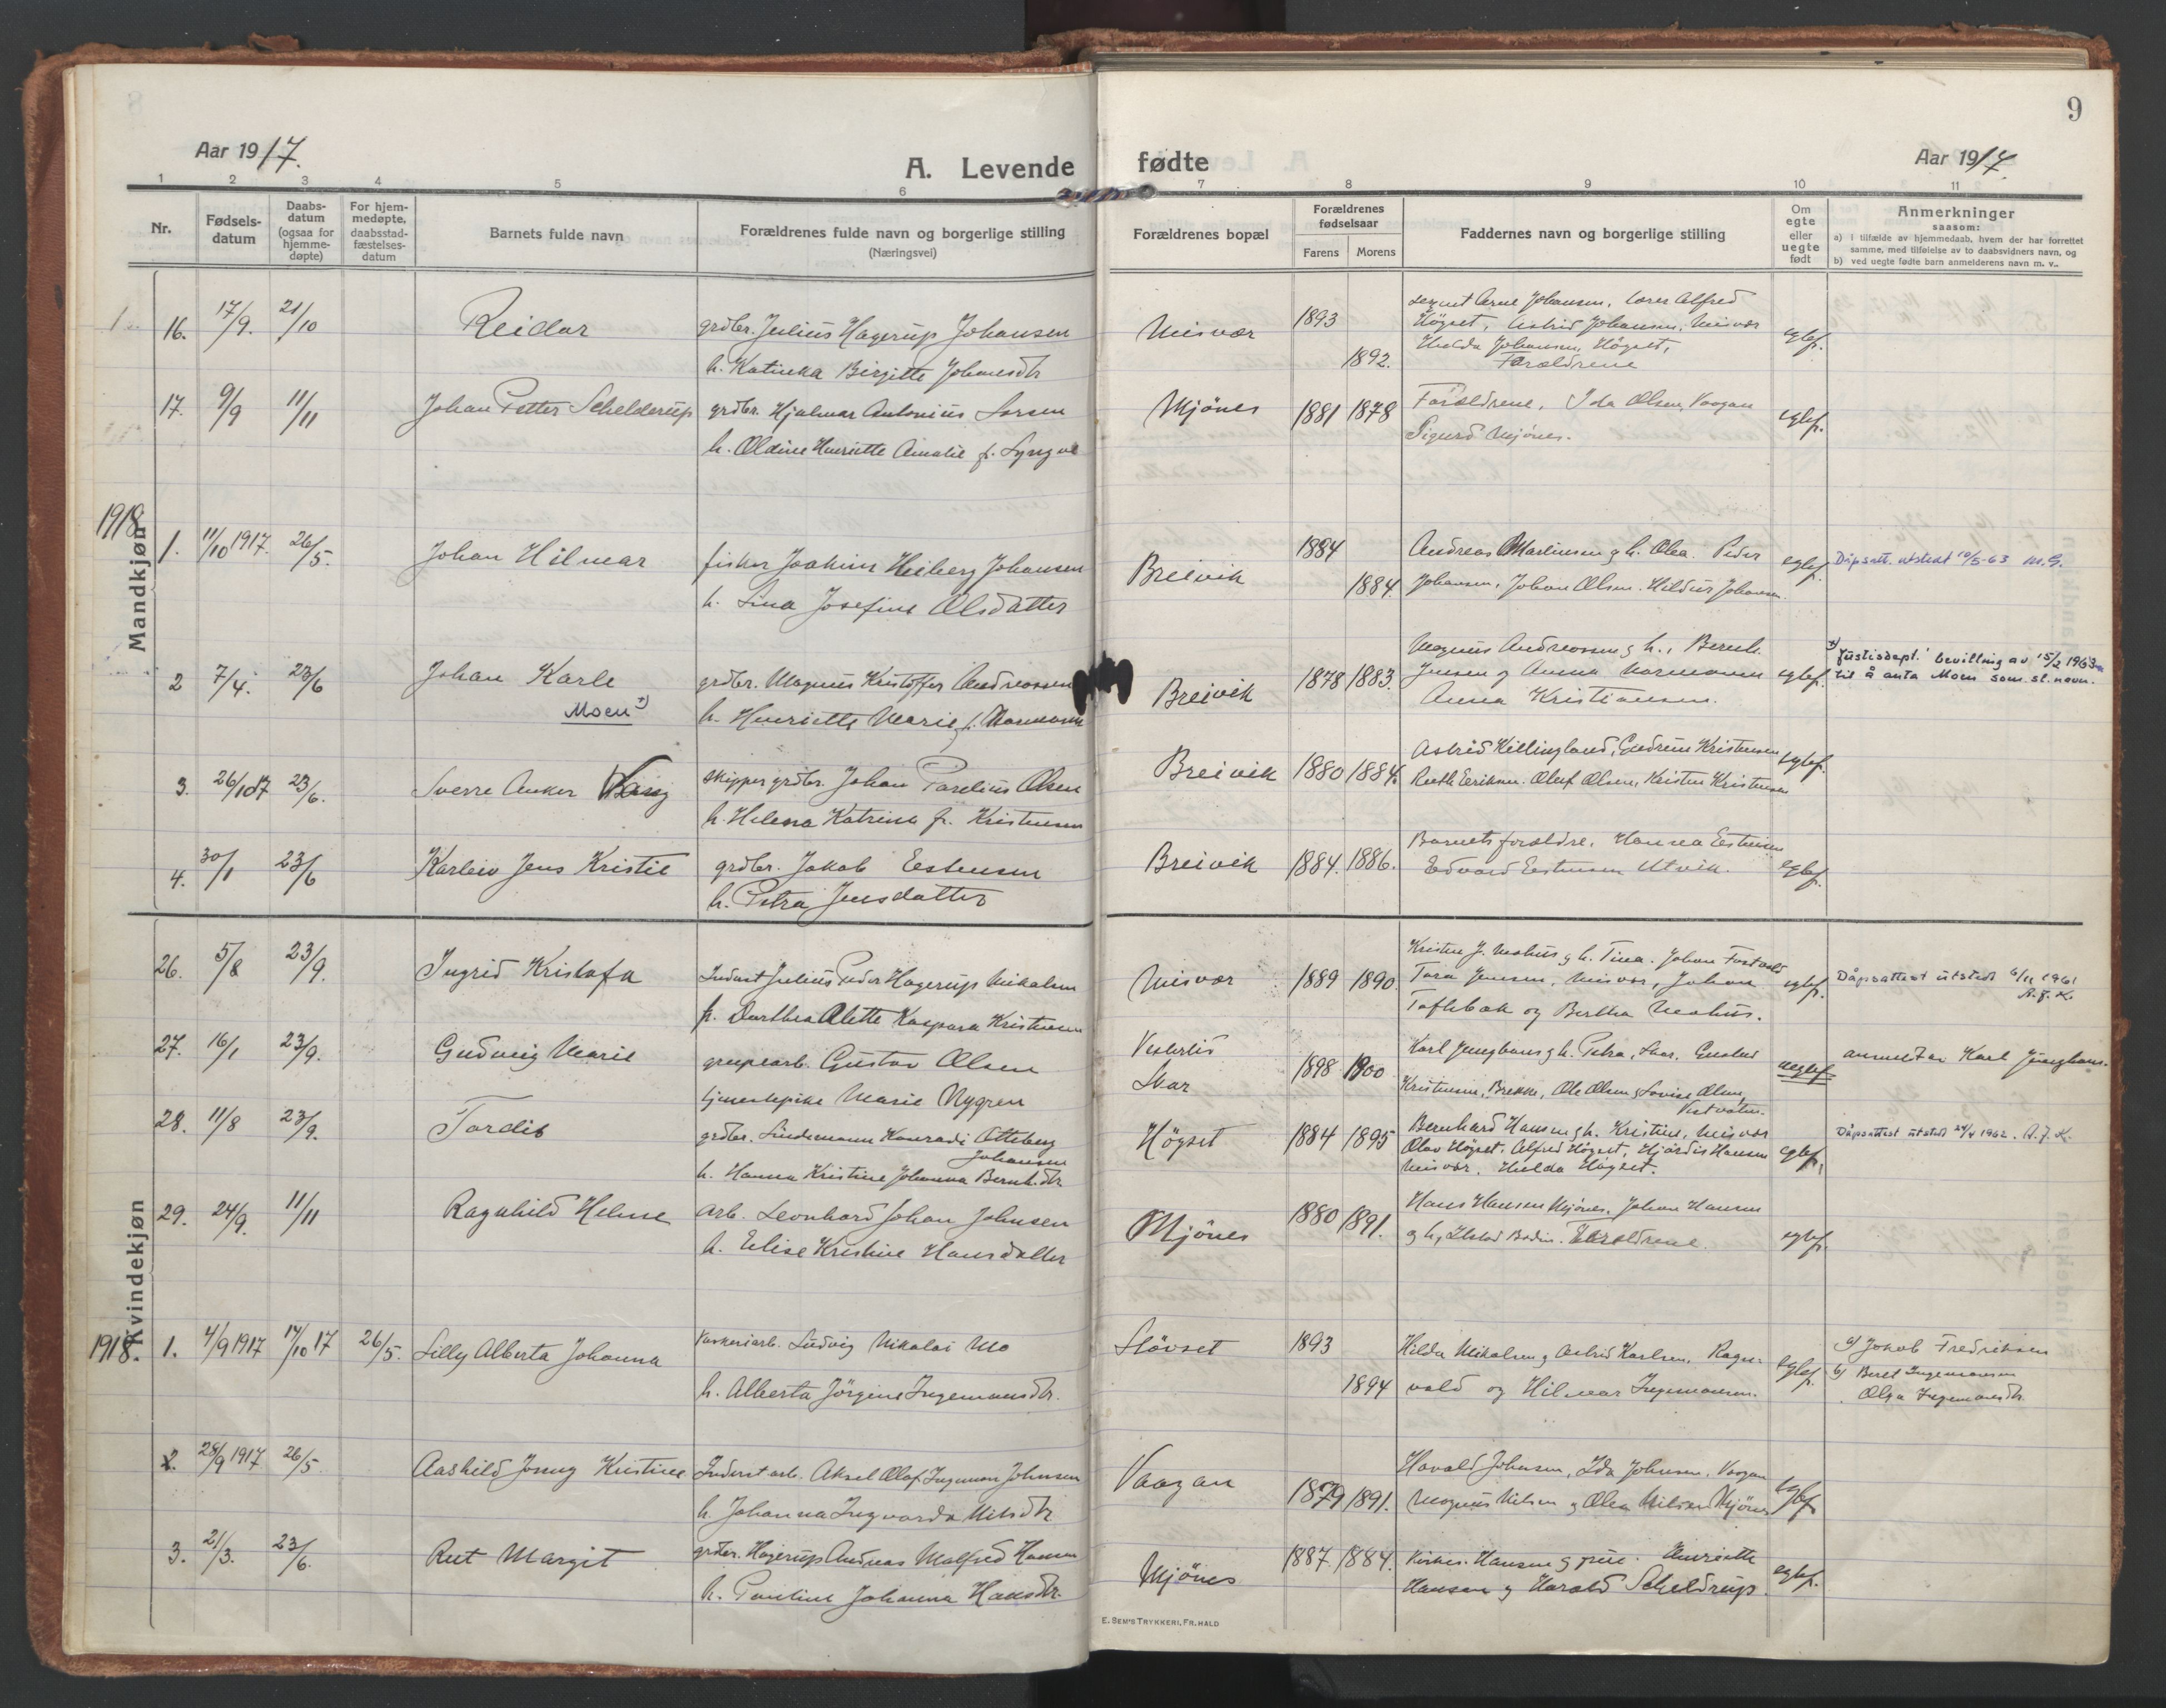 9
Aar 1917.
A. Levende fødte
Aar 1917.
1 2 3 4 5 6 7 8 9 10 11
Nr.
Fødsels-
datum
Daabs-
datum
(ogsaa for
hjemme-
døpte)
For hjem-
medøpte,
daabsstad-
fæstelses-
datum
Barnets fulde navn
Forældrenes fulde navn og borgerlige stilling
(Næringsvei)
Forældrenes bopæl
Forældrenes
fødselsaar
Farens Morens
Faddernes navn og borgerlige stilling
Om
egte
eller
uegte
født
Anmerkninger
saasom:
a) i tilfælde av hjemmedaab, hvem der har forrettet
samme, med tilføielse av to daabsvidners navn, og
b) ved uegte fødte barn anmelderens navn m. v.
Mandkjøn
16. 17/9. 21/10 Reidar grdbr. Julius Hagerup Johansen Misvær 1893 Arne Johansen, lærer Alfred
Høgset, Astrid Johansen, Misvær egtef.
h. Katinka Birgitte Johansdtr 1892. Hulda Johansen, Høgset,
Forældrene
17. 9/9 11/11 Johan Petter Schelderup grdbr. Hjalmar Antonius Larsen Mjönes 1881 1878 Forældrene, Ida Olsen, Vaagan egtef.
h. Oldine Henriette Amalie f. Sigurd Mjönes.
1918
1. 11/10 1917. 26/5. Johan Hilmar fisker Joakim Heiberg Johansen Breivik 1884 Andreas Martinsen g h. Olea. Peder egtef. Dåpsatt. utstedt 10/5-63 M.G.
h. Lina Josefine Olsdatter 1884. Johansen, Johan Olsen. Hildur Johansen.
2 7/4. 23/6 Johan Karle grdbr. Magnus Kristoffer Andreassen Breivik 1878 1883. Magnus Andreassen g h., Bernh.
Jensen og Anna Normann egtef. x) Justisdept.' bevilling av 15/2 1963
til å anta Moen som sl. navn.
Moen x) h. Henriette Marie f. Normann Anna Kristiansen.
3. 26/10 17 23/6. Sverre Anker skipper grdbr. Johan Parelius Olsen Breivik 1880 1884. Astrid Killingland, Gudrun Kristensen egtef.
h. Helena Katrina f. Kristensen Ruth Eriksen. Oluf Olsen, Kristen Kristensen
4. 30/1 23/6 Karleiv Jens Kristie grdbr. Jakob Estensen Breivik 1884. 1886. Barnets forældre. Hanna Estensen egtef.
h. Petra Jensdatter Edvard Estensen Utvik.
Kvindekjøn
26. 5/8 23/9. Ingrid Kristofa Inderst Julius Peder Hagerup Mikalsen Misvær 1889 1890 Kristen J. Moshus g h. Tina. Johan
Tora Jensen, Misvær, Johan egtef. Dåpsattest utstedt 6/11 1961
A.J.K.
f. Dorthea Alette Kaspara Kristensen Toftebak og Bertha Moshus.
27. 16/1 23/9. Gudveig Marie grupearb. Gustav Olsen Vesterlid 1898 1900 Karl Junghans g h. Petra, Svar, uegtef anmeldt av Karl Junghans.
tjenestepike Marie Nygren Svar Kristensen, Brekke, Ole Olsen g Lovise Olsen,
Vestvatn.
28. 11/8 23/9. Tordis grdbr. Lindemann Konradi Otteberg
Johansen Høgset 1884 1895 Bernhard Hansen g h. Kristine, Misvær
Olav Høgset, Alfred Høgset, Hjördis Hansen egtef. Dåpsattest utstedt 24/4 1962. A.J.K.
h. Hanna Kristine Johanna Bernh.dtr. Misvær, Hulda Høgset.
29. 24/9. 11/11 Ragnhild Helene arb. Leonhard Johan Johnsen Mjönes 1880 1891. Hans Hansen Mjönes. Johan Hansen
h. Elise Kristine Hansdatter g h, Bodin. Forældrene. egtef.
1918. 1. 4/9 1917 14/10 17 26/5. Lilly Alberta Johanna Ludvig Nikolai Mo Støvset 1893 Hilda Mikalsen g Astrid Karlsen, Ragn- egtef. a) Jakob Fredriksen
b) Beret Ingemansen
h. Alberta Jörgine Ingemansdtr. 1894 vald og Hilmar Ingemansen. Olga Ingemansdtr.
2. 28/9 1917 26/5 Aashild Jenny Kristine Inderst arb. Aksel Olaf Ingeman Johnsen Vaagan 1879 1891. Harald Johnsen, Ida Johnsen, Vaagan egtef
h. Johanna Ingvarda Nilsdtr Magnus Nilsen g Olea Nilsen Mjönes
3. 21/3. 23/6. Rut Margit grdbr. Hagerup Andreas Malfred Hansen Mjönes 1887. 1884. Hansen g frue. Henriette egtef.
h. Pauline Johanna Hansdtr. Hansen g Harald Scheldrup.
E. SEM'S TRYKKERI, FR.HALD